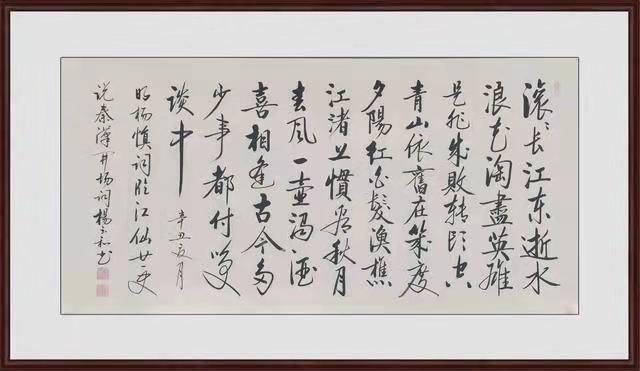 滚〻长江东逝水
浪花淘盡英雄
是非成敗转头空
青山依舊在幾度
夕陽红白髮漁樵
江渚上慣看秋月
春风一壶濁酒
喜相逢古今多
少事都付笑
談中
辛丑夏月
明杨慎词临江仙廿一史
说秦漢开场词楊和书